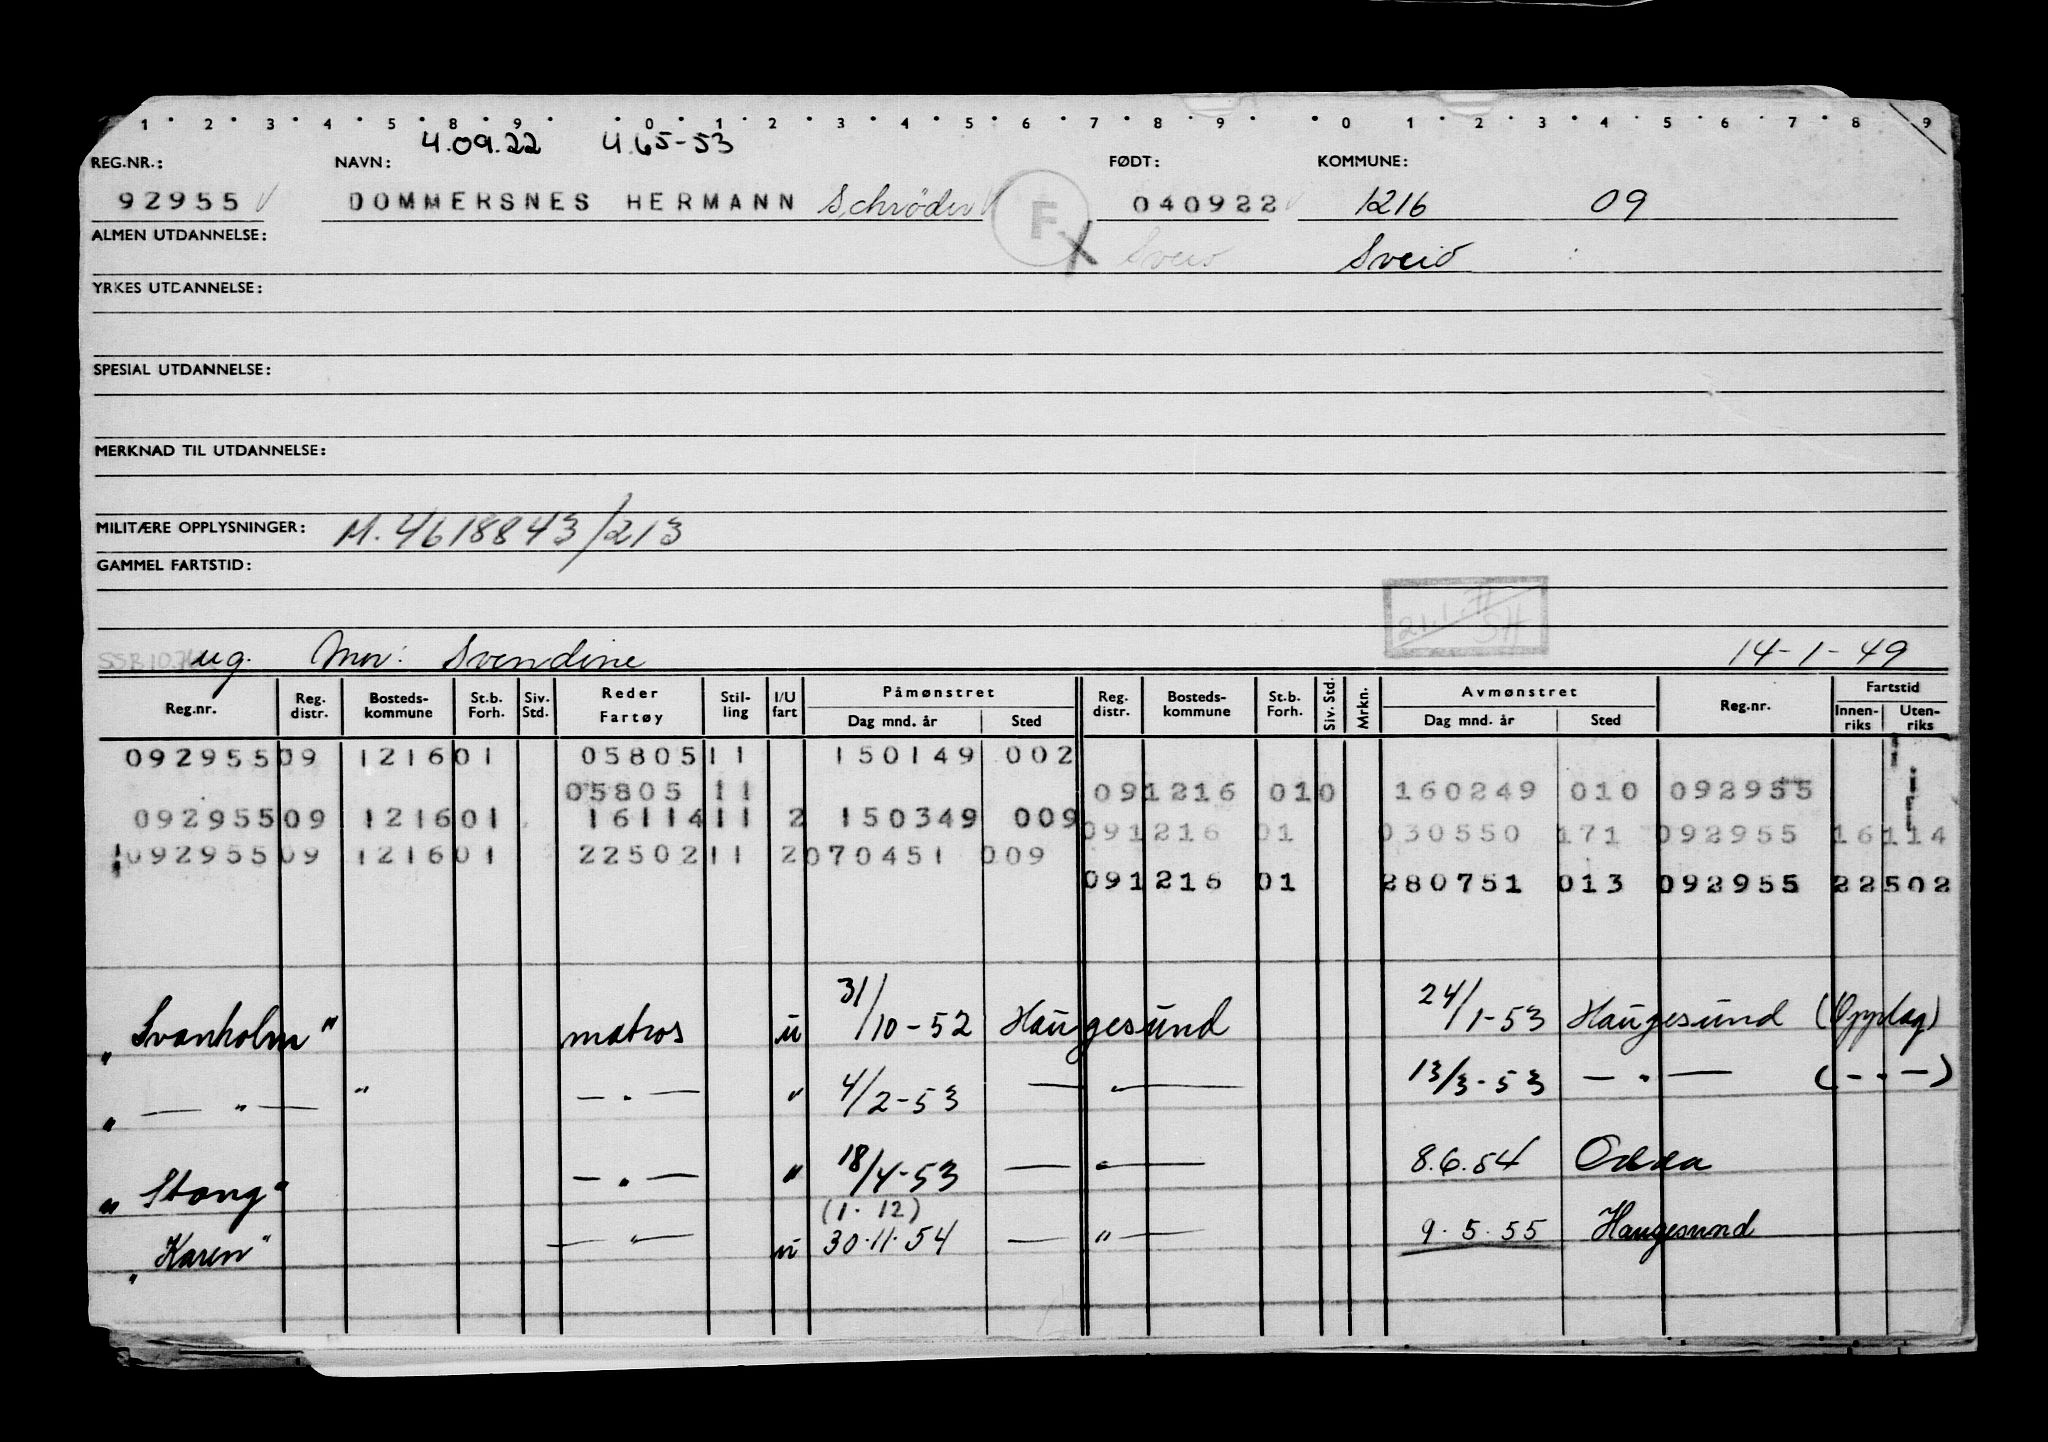 1 2 3 4 5 8 9 0 1 2 3 4 5 6 7 8 9 0 1 2 3 4 5 6 7 8 9
4.09.22 4.65-53
REG.NR.: NAVN: FØDT: KOMMUNE:
92955 DOMMERSNES HERMANN Schrøder F 040922 1216 09
ALMEN UTDANNELSE: Sveio Sveio
YRKES UTDANNELSE:
SPESIAL UTDANNELSE:
MERKNAD TIL UTDANNELSE:
MILITÆRE OPPLYSNINGER: M. 4618843/213
GAMMEL FARTSTID:
ug. Mor: Svendine 14-1-49
Reg.nr. Reg. distr. Bosteds-kommune St.b. Forh. Siv. Std. Reder Fartøy Stil-ling I/U fart Påmønstret Dag mnd. år Sted Reg. distr. Bosteds-kommune St.b. Forh. Siv. Std. Mrkn. Avmønstret Dag mnd. år Sted Reg.nr. Fartstid Innen-riks Uten-riks
092955 09 1216 01 05805 11 150149 002
05805 11 09 1216 01 0 160249 010 092955
092955 09 1216 01 16114 11 2 150349 009
09 1216 01 030550 171 092955 16114
092955 09 1216 01 22502 11 2 070451 009
09 1216 01 280751 013 092955 22502
"Svanholm" matros u 31/10-52 Haugesund 24/1-53 Haugesund (Opplag)
" — " — " — " — " 4/2-53 — " — 13/3-53 — " — (— " —)
"Stang" — " — " 18/4-53 — " — 8.6.54 Odda
(1.12)
"Karen" — " — u 30.11.54 — " — 9.5.55 Haugesund